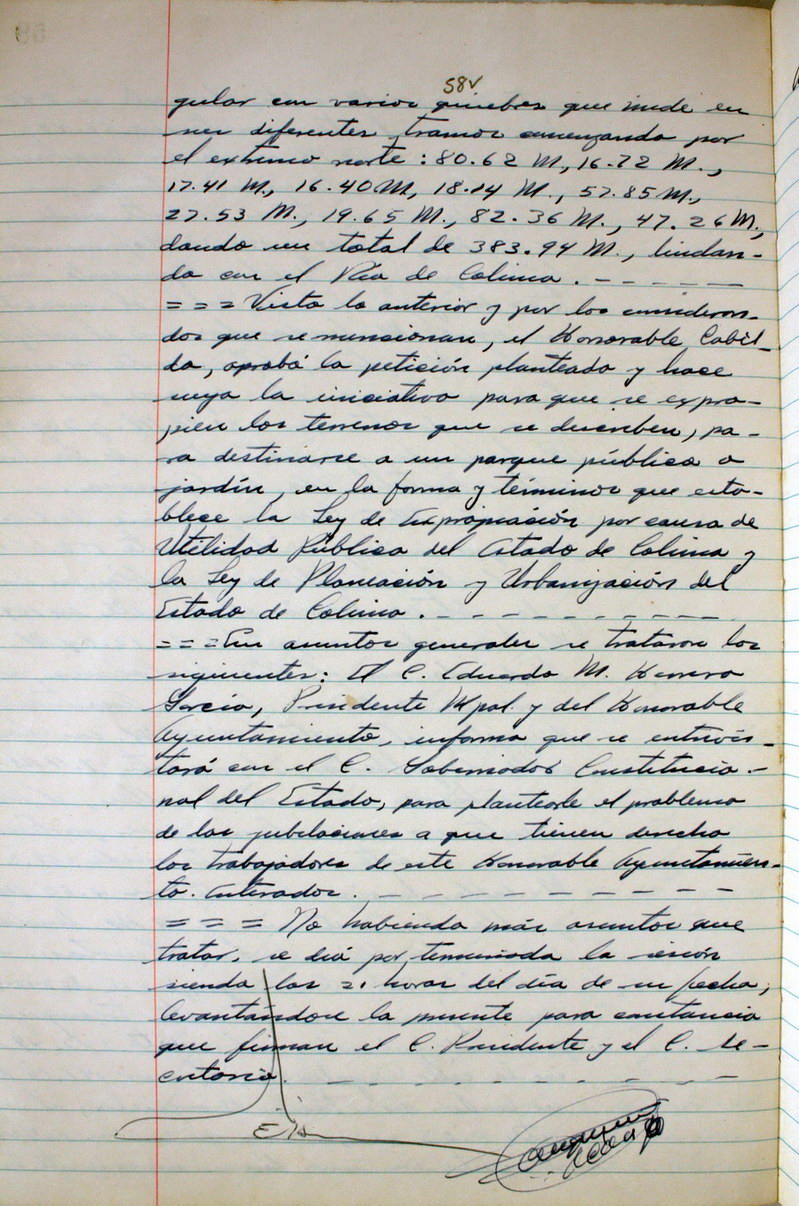 58v
gular con varios quiebres que mide en
sus diferentes tramos comenzando por
el extremo norte : 80.62 M., 16.72 M.,
17.41 M., 16.40 M., 18.14 M., 57.85 M.,
27.53 M., 19.65 M., 82.36 M., 47.26 M.,
dando un total de 383.94 M., lindan-
do con el Río de Colima . - - - - - -
= = = Visto lo anterior y por los consideran-
dos que se mencionan, el Honorable Cabil-
do, aprobó la petición planteada y hace
suya la iniciativa para que se expro-
pien los terrenos que se describen, pa-
ra destinarse a un parque público o
jardín, en la forma y términos que esta-
blece la Ley de Expropiación por causa de
Utilidad Pública del Estado de Colima y
la Ley de Planeación y Urbanización del
Estado de Colima . - - - - - - - - - -
= = = En asuntos generales se trataron los
siguientes: El C. Eduardo M. Herrera
García, Presidente Mpal. y del Honorable
Ayuntamiento, informa que se entrevis-
tará con el C. Gobernador Constitucio-
nal del Estado, para plantearle el problema
de las jubilaciones a que tienen derecho
los trabajadores de este Honorable Ayuntamien-
to. Enterados . - - - - - - - - - -
= = = No habiendo más asuntos que
tratar, se dió por terminada la sesión
siendo las 21 horas del día de su fecha,
levantándose la presente para constancia
que firman el C. Presidente y el C. Se-
cretario. - - - - - - - - - -